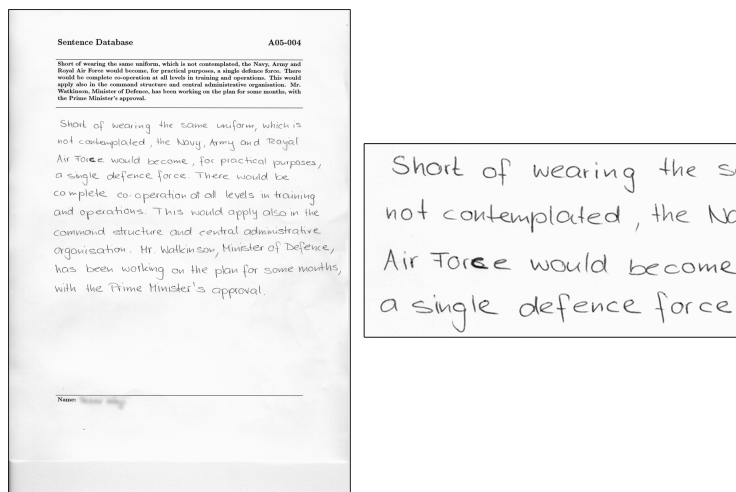 Sentence Database A05-004
Short of wearing the same uniform, which is not contemplated, the Navy, Army and
Royal Air Force would become, for practical purposes, a single defence force. There
would be complete co-operation at all levels in training and operations. This would
apply also in the command structure and central administrative organisation. Mr.
Watkinson, Minister of Defence, has been working on the plan for some months, with
the Prime Minister's approval.
Short of wearing the same uniform, which is
not contemplated, the Navy, Army and Royal
Air Force would become, for practical purposes,
a single defence force. There would be
complete co-operation at all levels in training
and operations. This would apply also in the
command structure and central administrative
organisation. Mr. Watkinson, Minister of Defence,
has been working on the plan for some months,
with the Prime Minister's approval.
Name:
Short of wearing the s
not contemplated, the Na
Air Force would become
a single defence force